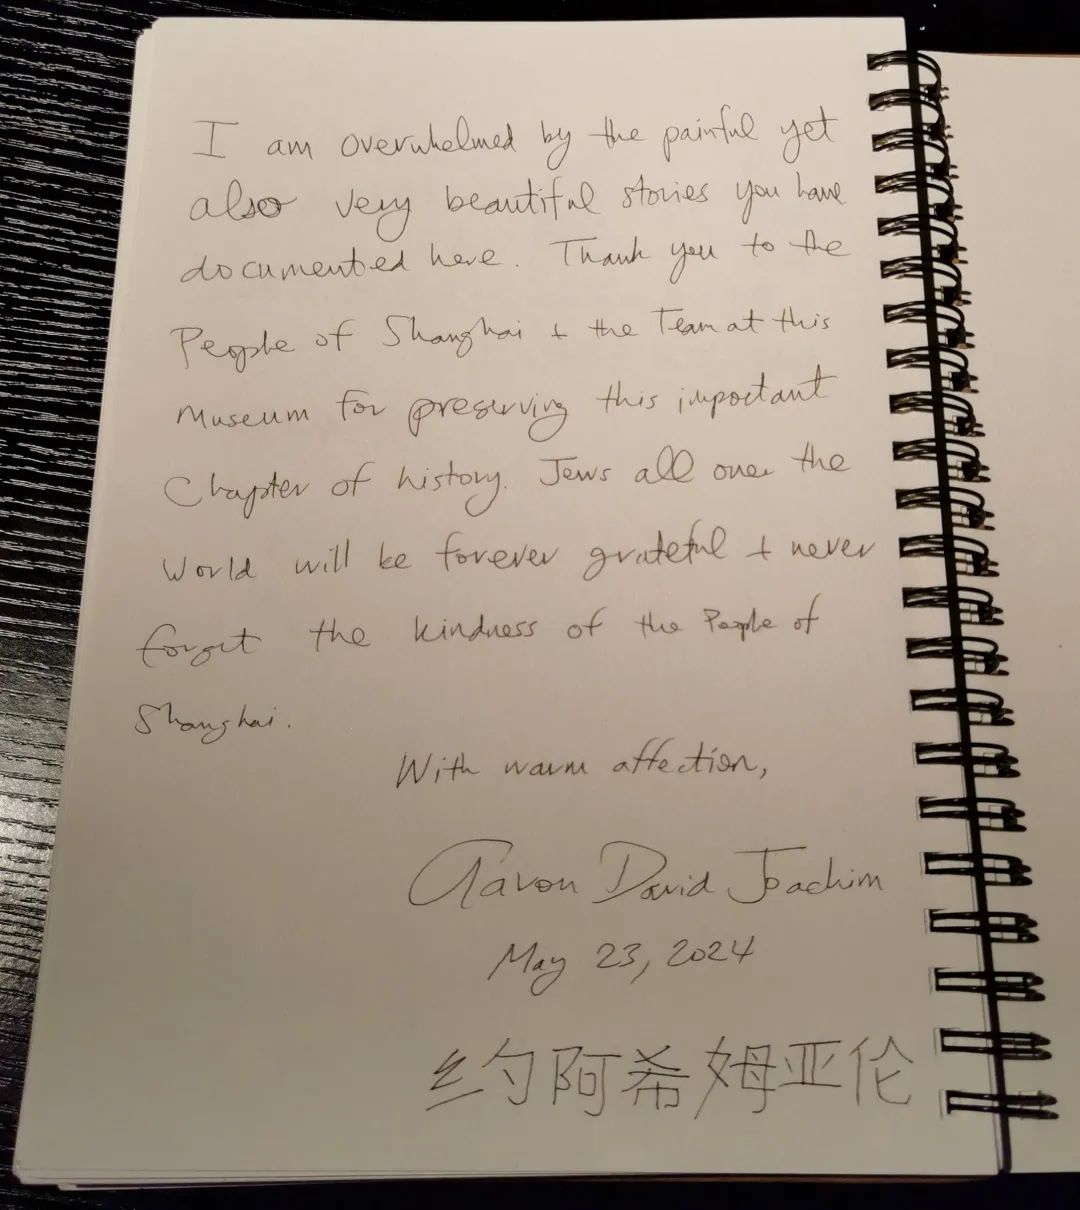 I am overwhelmed by the painful yet
also very beautiful stories you have
documented here. Thank you to the
People of Shanghai + the Team at this
Museum for preserving this important
Chapter of history. Jews all over the
World will be forever grateful + never
forget the kindness of the People of
Shanghai.
With warm affection,
Aaron David Joachim
May 23, 2024
约阿希姆亚伦